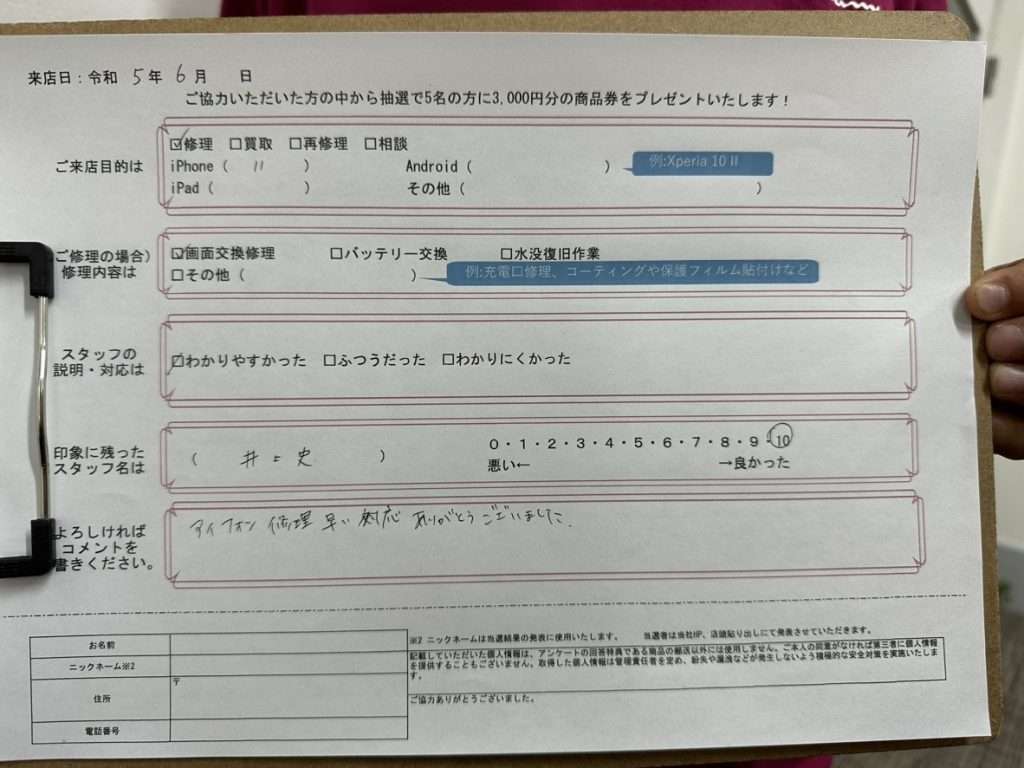 来店日：令和 5年 6月 日
ご協力いただいた方の中から抽選で5名の方に3,000円分の商品券をプレゼントいたします！
ご来店目的は
☑修理 □買取 □再修理 □相談
iPhone（ 11 ） Android（ ） 例:Xperia 10 II
iPad（ ） その他（ ）
ご修理の場合）
修理内容は
☑画面交換修理 □バッテリー交換 □水没復旧作業
□その他（ ） 例:充電口修理、コーティングや保護フィルム貼付けなど
スタッフの
説明・対応は
☑わかりやすかった □ふつうだった □わかりにくかった
印象に残った
スタッフ名は
（ 井 史 ）
0・1・2・3・4・5・6・7・8・9・10
悪い← →良かった
よろしければ
コメントを
書きください。
アイフォン 修理 早い 対応 ありがとうございました.
お名前
ニックネーム※2
住所
〒
電話番号
※2 ニックネームは当選結果の発表に使用いたします。 当選者は当社HP、店頭貼り出しにて発表させていただきます。
記載していただいた個人情報は、アンケートの回答特典である商品の郵送以外には使用しません。ご本人の同意がなければ第三者に個人情報
を提供することもございません。取得した個人情報は管理責任者を定め、紛失や漏洩などが発生しないよう積極的な安全対策を実施いたしま
す。
ご協力ありがとうございました。